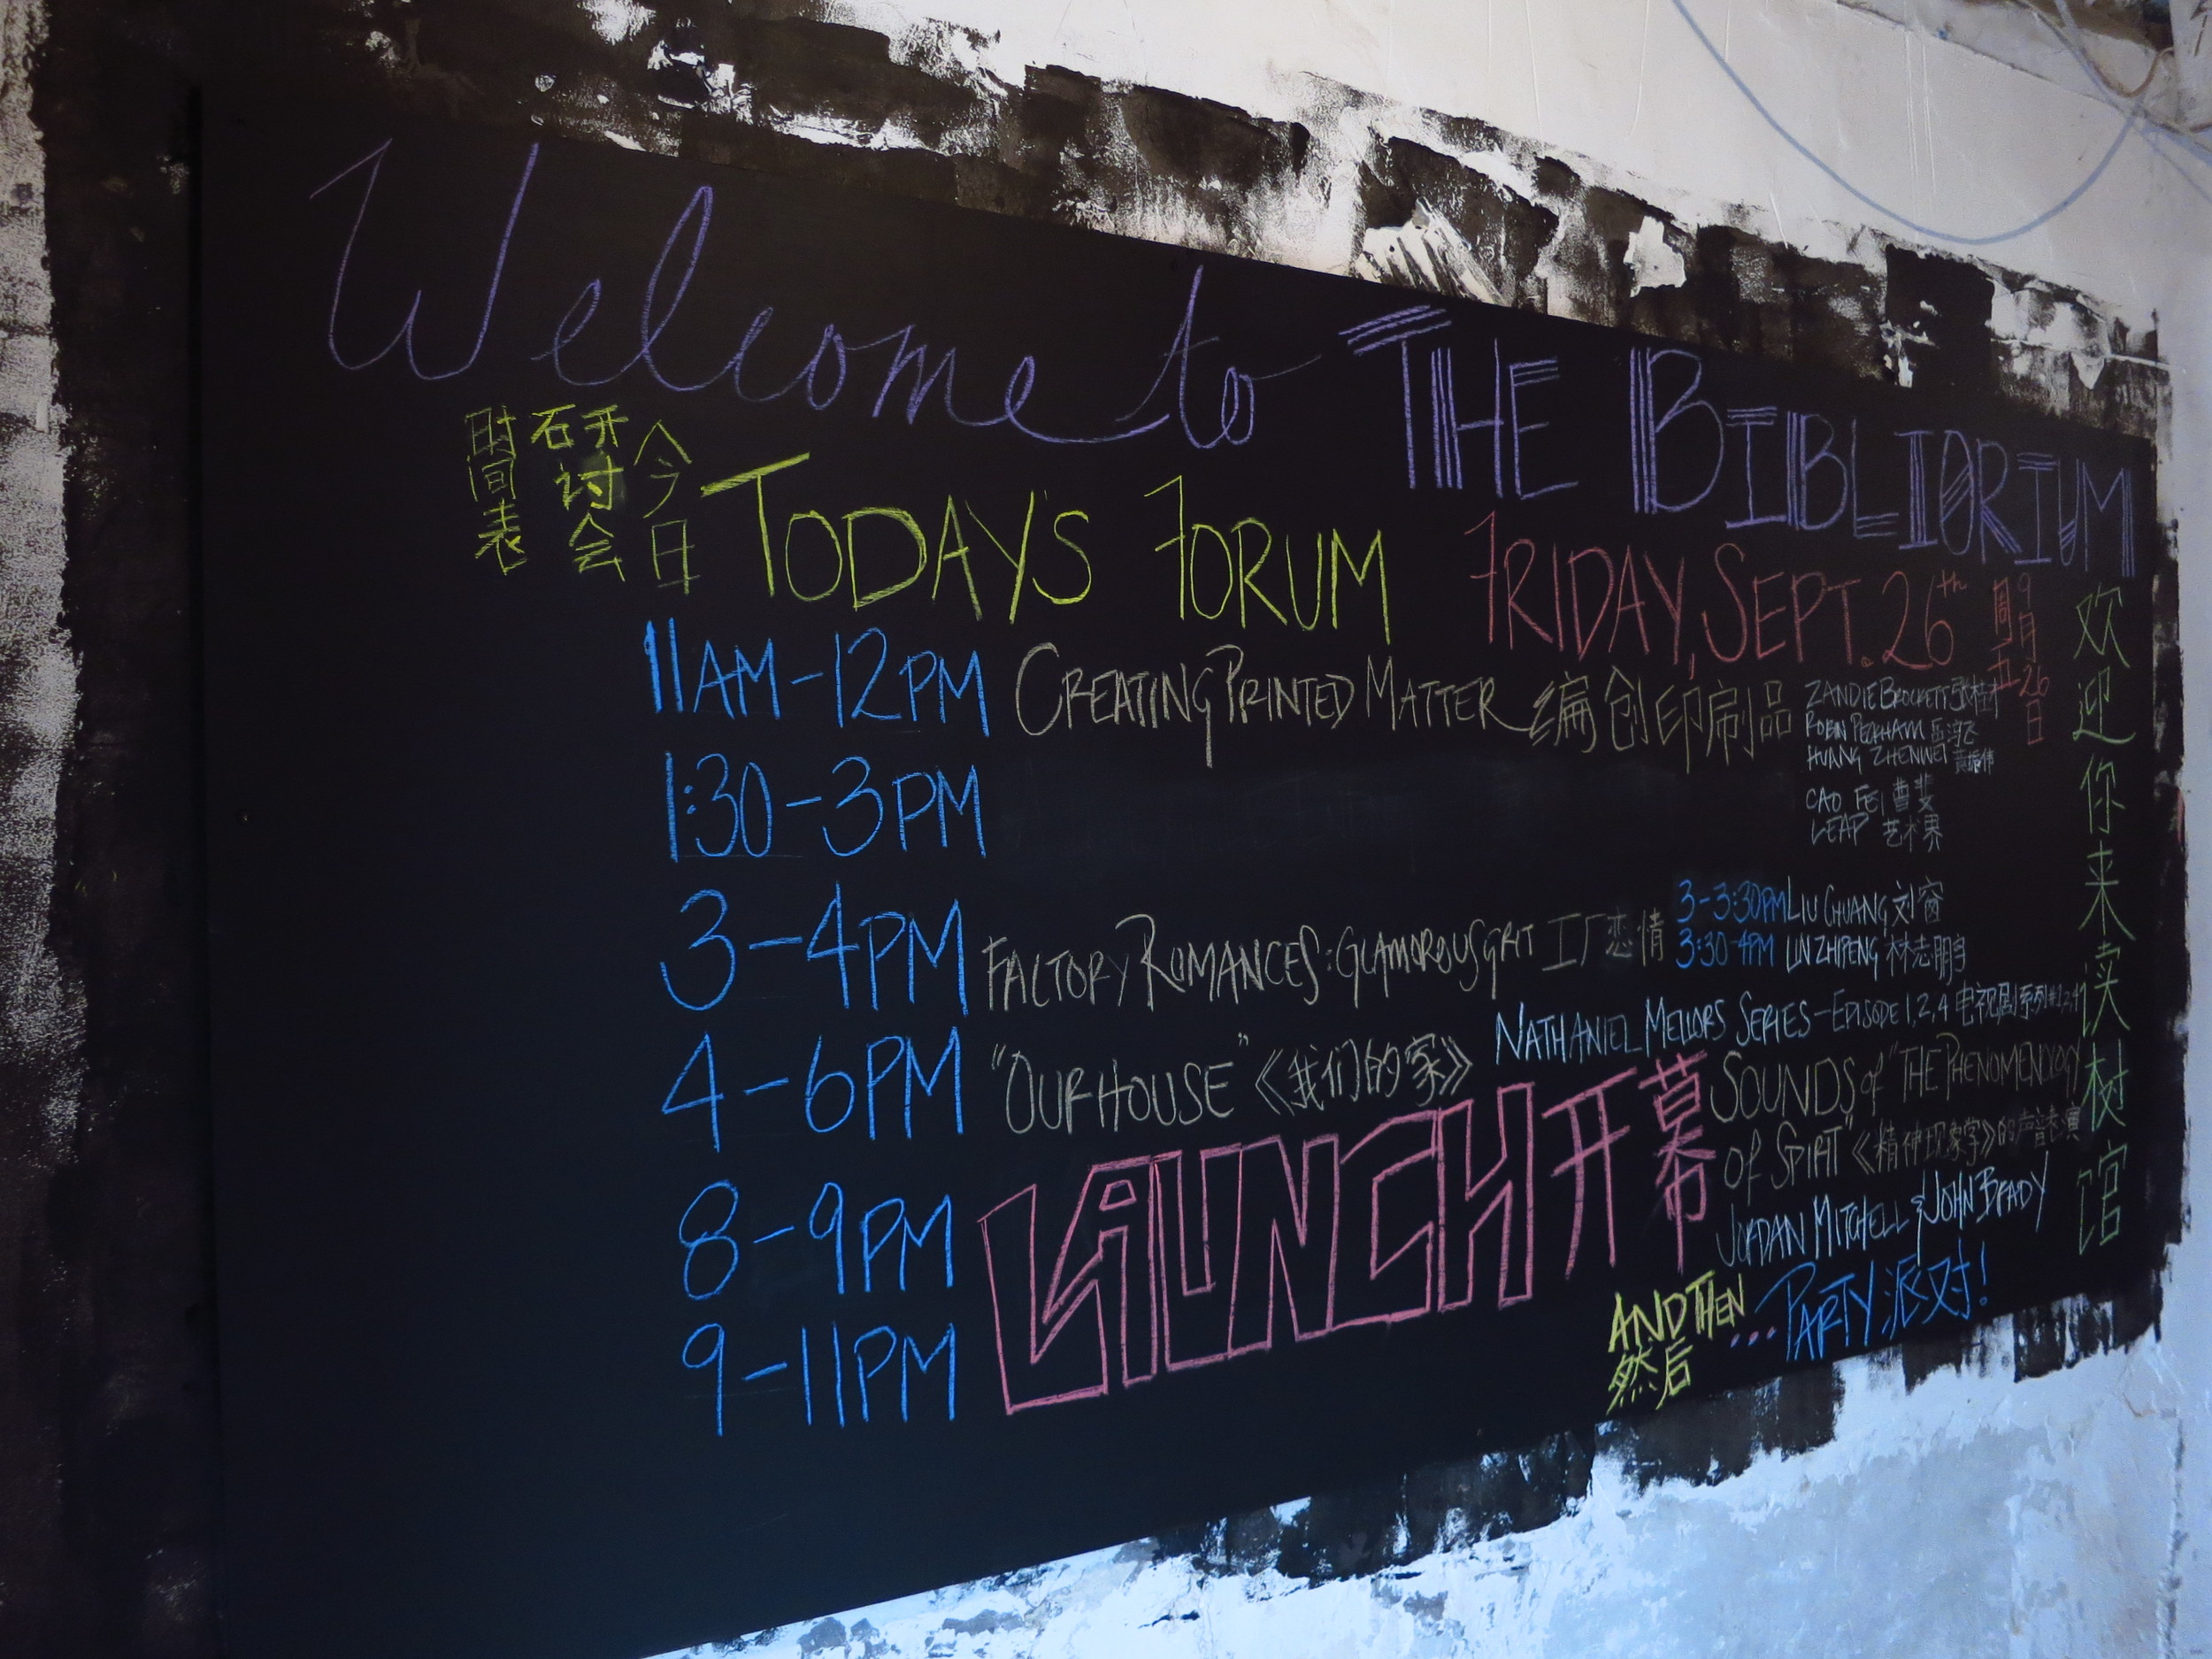 Welcome to THE BIBLIORIUM
欢迎你来读树馆
今日
研讨会
时间表
TODAY'S FORUM
FRIDAY, SEPT. 26th
9月26日
周五
11AM-12PM CREATING PRINTED MATTER 编创印刷品
ZANDIE BROCKETT
ROBIN PECKHAM 岳鸿飞
HUANG ZHENWEI 黄振伟
1:30-3PM
CAO FEI 曹斐
LEAP 艺术界
3-4PM FACTORY ROMANCES: GLAMOROUS GRIT 工厂恋情
3-3:30PM LIU CHUANG 刘窗
3:30-4PM LIN ZHIPENG 林志鹏
4-6PM "OUR HOUSE" 《我们的家》
NATHANIEL MELLORS SERIES-EPISODE 1,2,4 电视剧系列#1,2,4
8-9PM
9-11PM
LAUNCH 开幕
SOUNDS of "THE PHENOMENOLOGY
OF SPIRIT" 《精神现象学》的声音表演
JORDAN MITCHELL & JOHN BRADY
AND THEN
然后
...PARTY 派对!